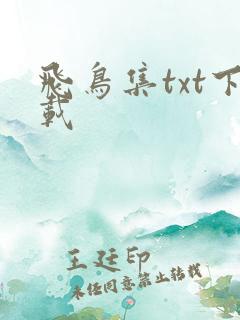 飛鳥集txt下
載
王廷印
未经同意禁止转载